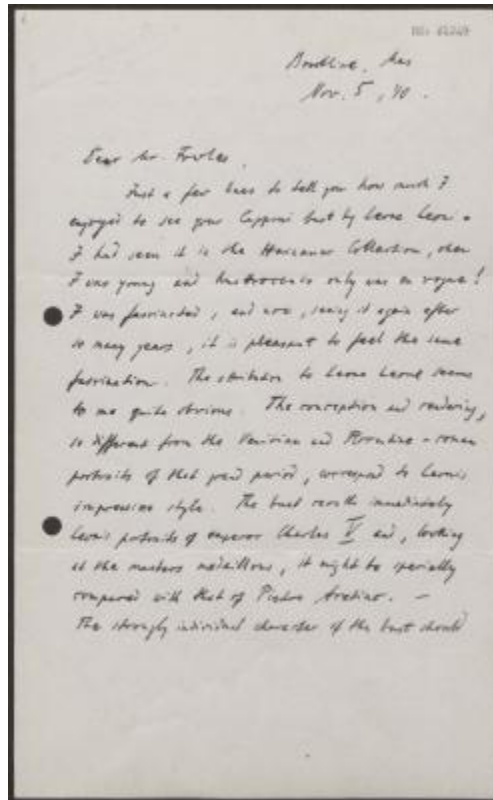 Brookline, Mas
Nov. 5, 40.
Dear Mr. Fowles,
Just a few lines to tell you how much I
enjoyed to see your Capponi bust by Leone Leoni.
I had seen it in the Hainauer Collection, when
I was young and Quattrocento only was en vogue!
I was fascinated, and now, seeing it again after
so many years, it is pleasant to feel the same
fascination. The attribution to Leone Leoni seems
to me quite obvious. The conception and rendering,
so different from the Venitian and Florentine-roman
portraits of that great period, correspond to Leoni's
impressive style. The bust recalls immediately
Leoni's portraits of emperor Charles V and, looking
at the masters medaillons, it might be specially
compared with that of Pietro Aretino. —
The strongly individual character of the bust should